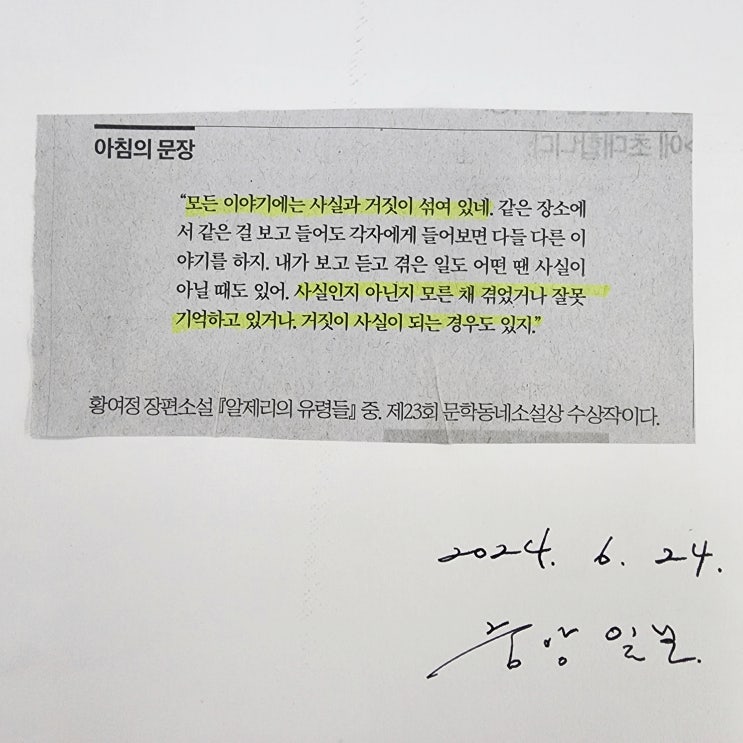 아침의 문장
에 초대합니다
“모든 이야기에는 사실과 거짓이 섞여 있네. 같은 장소에
서 같은 걸 보고 들어도 각자에게 들어보면 다들 다른 이
야기를 하지. 내가 보고 듣고 겪은 일도 어떤 땐 사실이
아닐 때도 있어. 사실인지 아닌지 모른 채 겪었거나 잘못
기억하고 있거나. 거짓이 사실이 되는 경우도 있지.”
황여정 장편소설 『알제리의 유령들』 중. 제23회 문학동네소설상 수상작이다.
2024. 6. 24.
중앙일보.